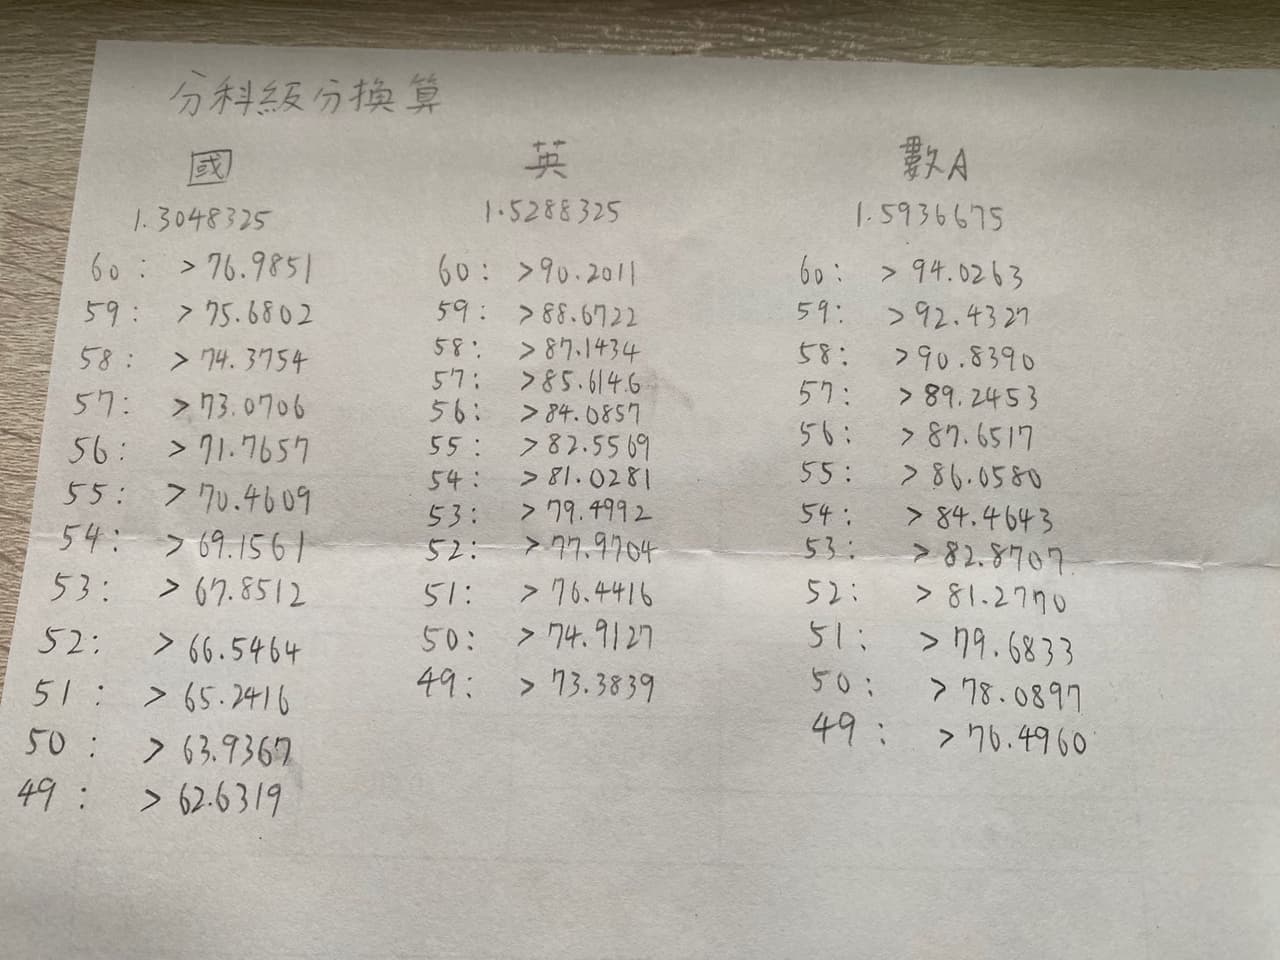 分科級分換算
國
1.3048325
60: >76.9851
59: >75.6802
58: >74.3754
57: >73.0706
56: >71.7657
55: >70.4609
54: >69.1561
53: >67.8512
52: >66.5464
51: >65.2416
50: >63.9367
49: >62.6319
英
1.5288325
60: >90.2011
59: >88.6722
58: >87.1434
57: >85.6146
56: >84.0857
55: >82.5569
54: >81.0281
53: >79.4992
52: >77.9704
51: >76.4416
50: >74.9127
49: >73.3839
數A
1.5936675
60: >94.0263
59: >92.4327
58: >90.8390
57: >89.2453
56: >87.6517
55: >86.0580
54: >84.4643
53: >82.8707
52: >81.2770
51: >79.6833
50: >78.0897
49: >76.4960